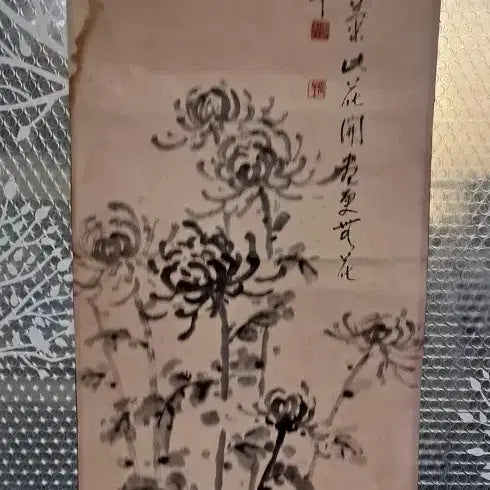 菊此花開盡更無花